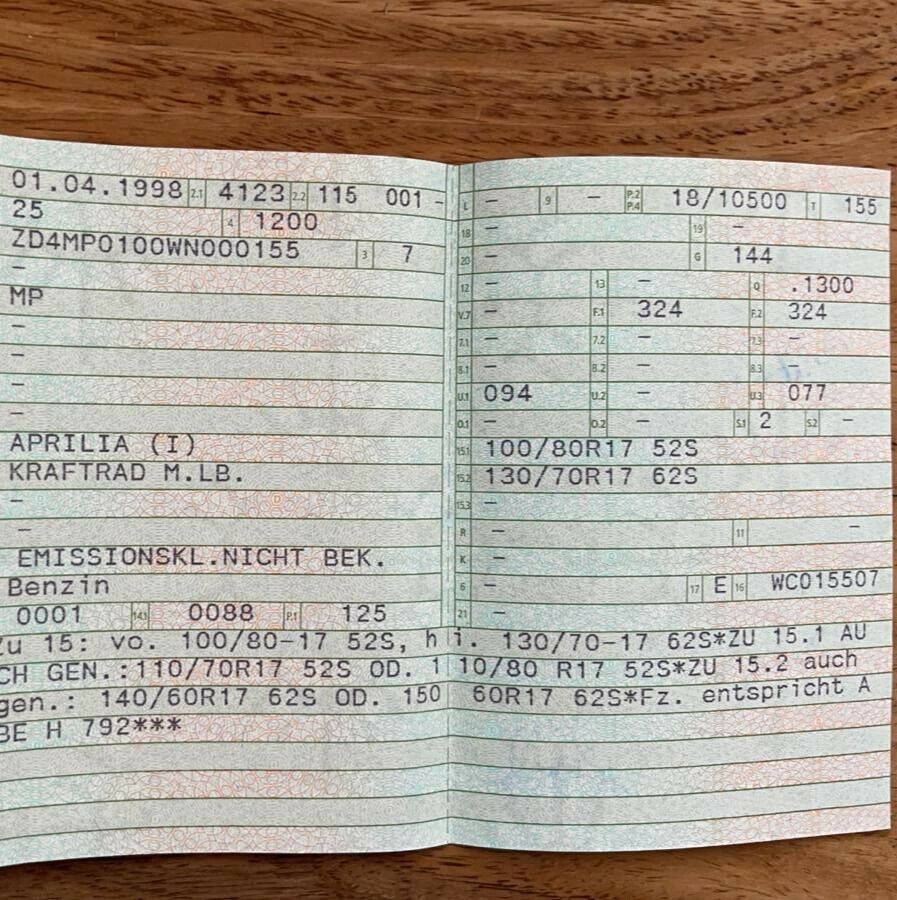 01.04.1998 2.1 4123 2.2 115 001 -
25 4 1200
ZD4MP0100WN000155 3 7
–
MP
–
–
–
–
APRILIA (I)
KRAFTRAD M.LB.
–
–
EMISSIONSKL.NICHT BEK.
Benzin
0001 14.1 0088 P.1 125
L – 9 – P.2 P.4 18/10500 T 155
18 – 19 –
20 – G 144
12 – 13 – Q .1300
V.7 – F.1 324 F.2 324
7.1 – 7.2 – 7.3 –
8.1 – 8.2 – 8.3 –
U.1 094 U.2 – U.3 077
O.1 – O.2 – S.1 2 S.2 –
15.1 100/80R17 52S
15.2 130/70R17 62S
15.3 –
R – 11 –
K –
6 – 17 E 16 WC015507
21 –
Zu 15: vo. 100/80-17 52S, hi. 130/70-17 62S*ZU 15.1 AU
CH GEN.:110/70R17 52S OD. 110/80 R17 52S*ZU 15.2 auch
gen.: 140/60R17 62S OD. 150 60R17 62S*Fz. entspricht A
BE H 792***